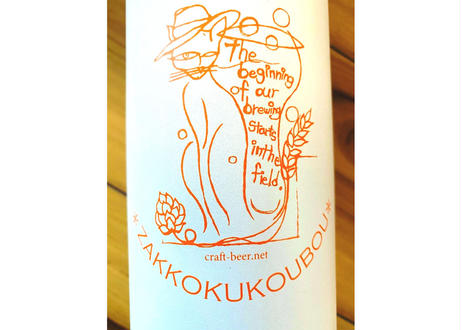 The
beginning
of our
brewing
starts
in the
field.
craft-beer.net
*ZAKKOKUKOUBOU*